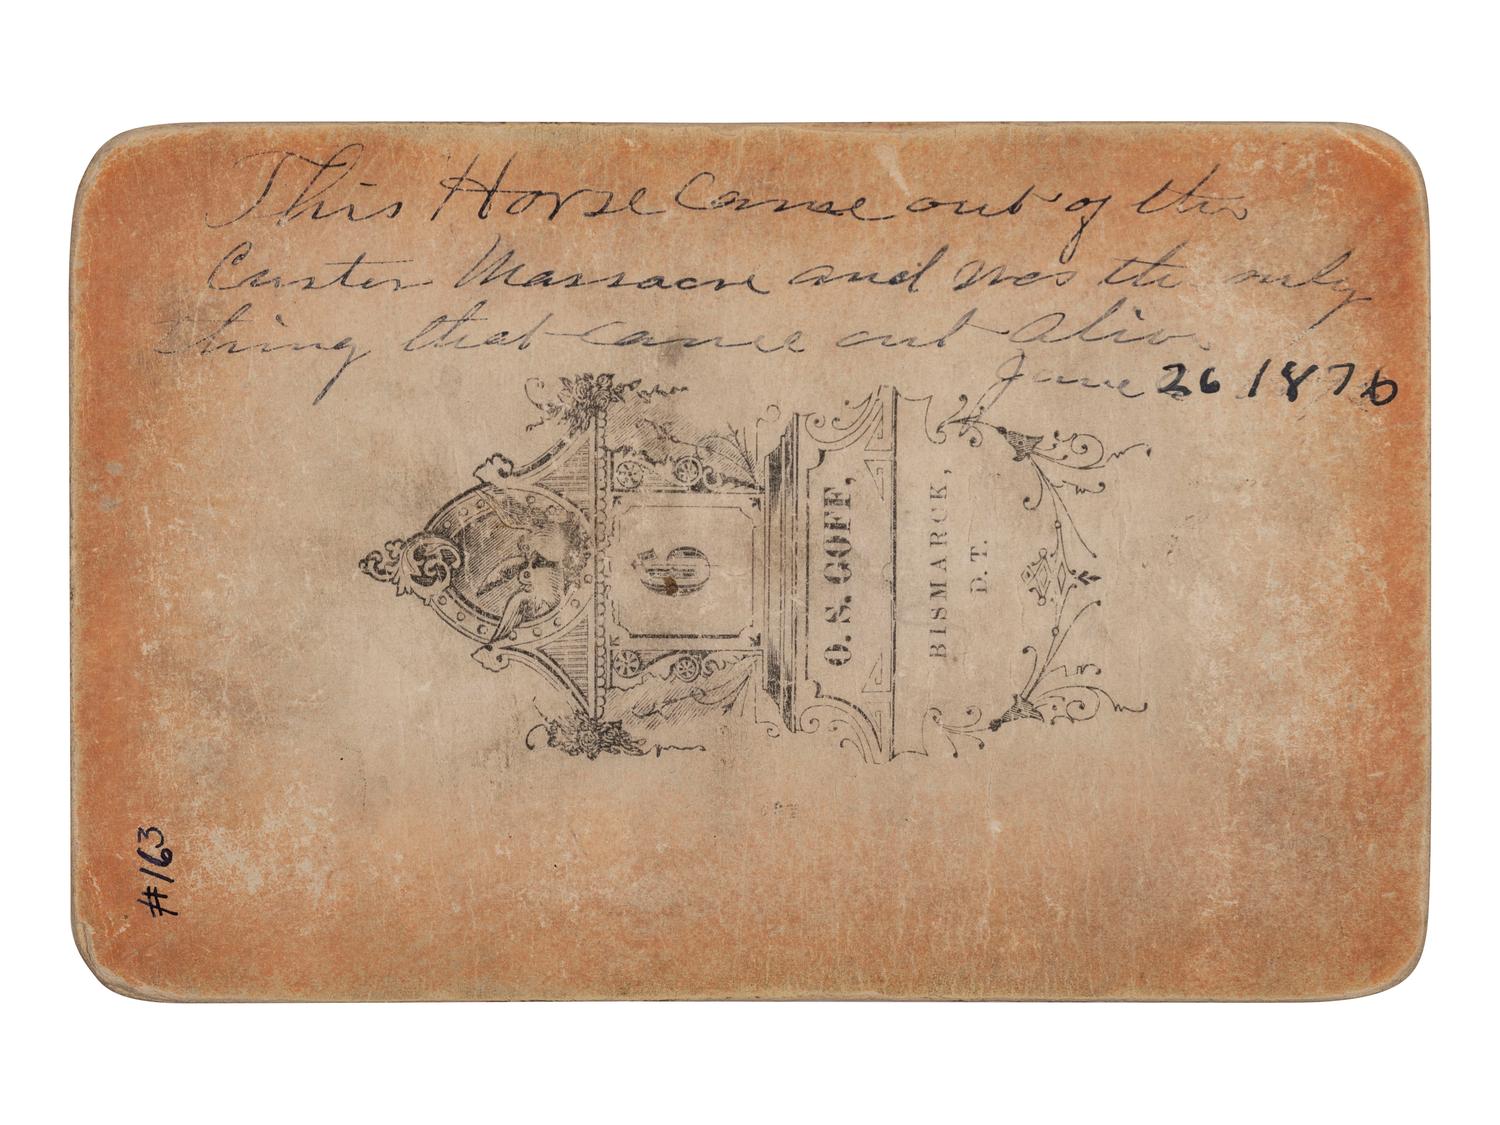 This Horse Came out of the
Custer Massacre and was the only
thing that came out alive
June 26 1876
G
O. S. GOFF,
BISMARCK,
D. T.
#163